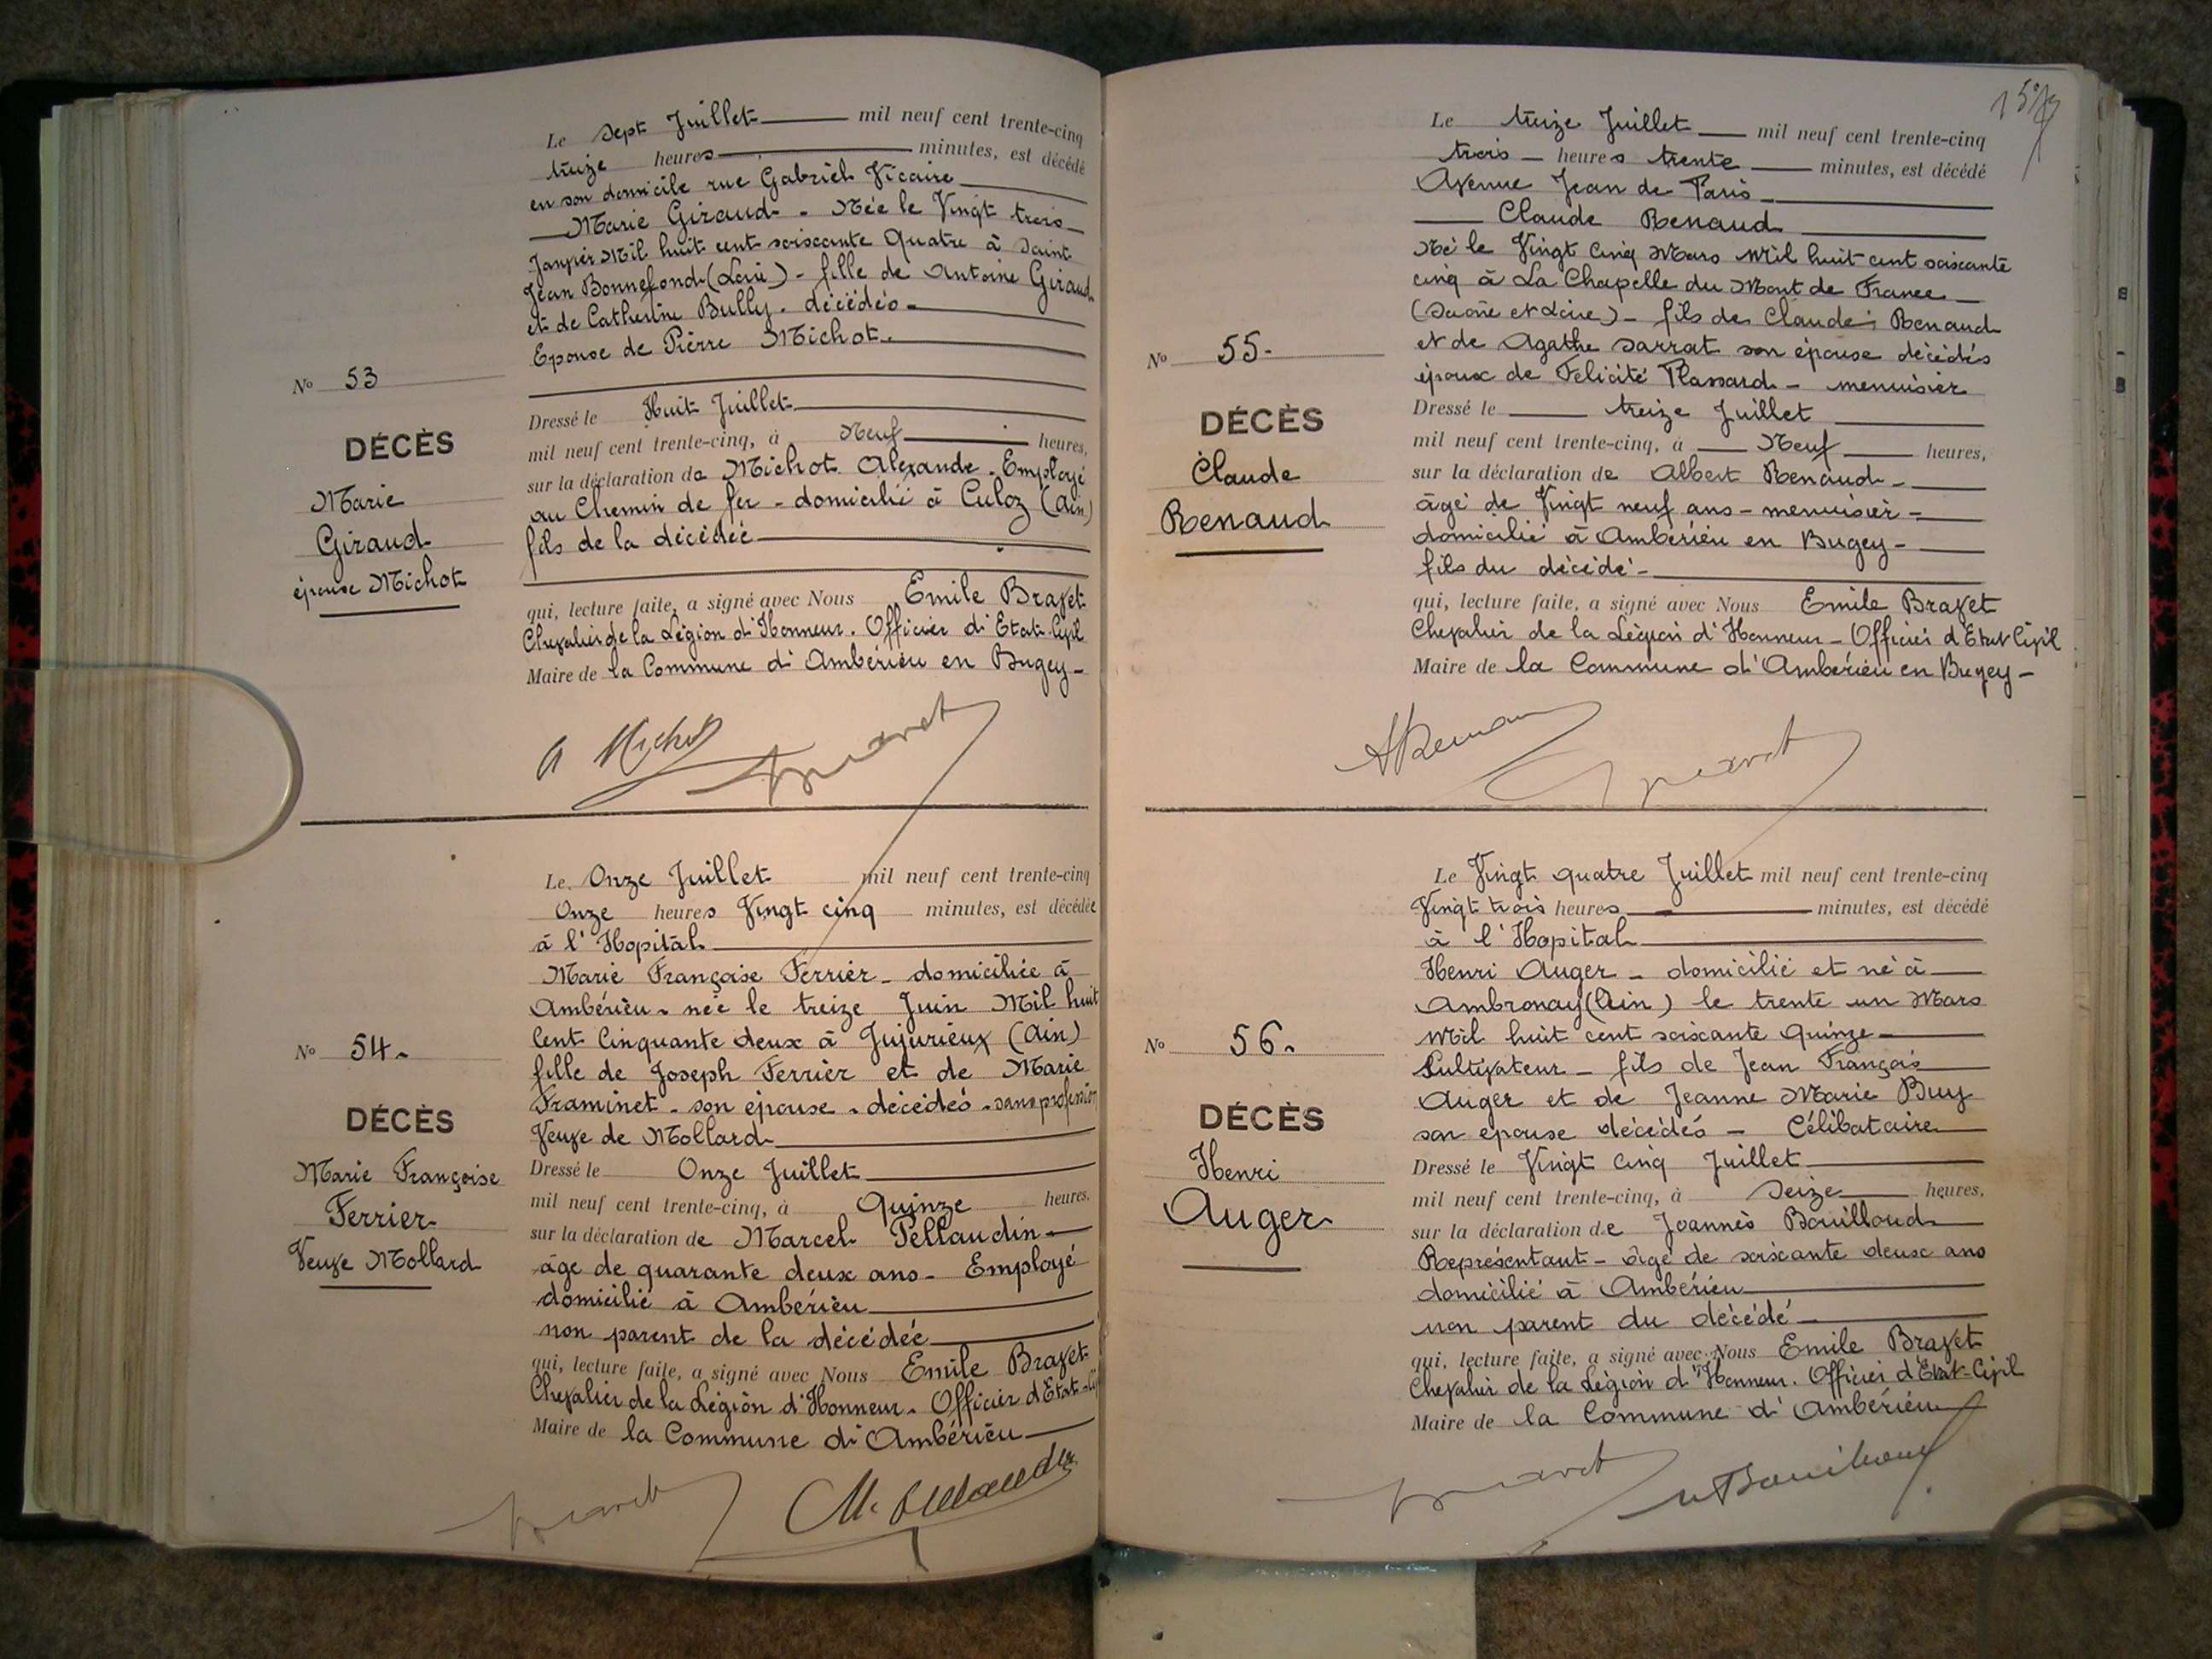 Le sept Juillet mil neuf cent trente-cinq
treize heures minutes, est décédé
en son domicile rue Gabriel Vicaire
Marie Giraud - Née le Vingt trois
Janvier Mil huit cent soixante Quatre à Saint
Jean Bonnefond (Loire) - fille de Antoine Giraud
et de Catherine Bully. décédés -
Epouse de Pierre Michot.
No 53
DÉCÈS
Marie
Giraud
épouse Michot
Dressé le Huit Juillet
mil neuf cent trente-cinq, à Neuf heures,
sur la déclaration de Michot Alexande. Employé
au Chemin de fer - domicilié à Culoz (Ain)
fils de la décédée
qui, lecture faite, a signé avec Nous Emile Bravet
Chevalier de la Légion d'Honneur. Officier d'Etat-Civil
Maire de la Commune d'Ambérieu en Bugey -
A Michot
Le Onze Juillet mil neuf cent trente-cinq
Onze heures Vingt cinq minutes, est décédée
à l'Hopital
Marie Françoise Ferrier - domiciliée à
Ambérieu - née le treize Juin Mil huit
Cent Cinquante deux à Jujurieux (Ain)
fille de Joseph Ferrier et de Marie
Framinet - son épouse - décédés - sans profession
Veuve de Mollard
No 54 -
DÉCÈS
Marie Françoise
Ferrier
Veuve Mollard
Dressé le Onze Juillet
mil neuf cent trente-cinq, à Quinze heures.
sur la déclaration de Marcel Pellaudin -
âge de quarante deux ans - Employé
domicilié à Ambérieu
non parent de la décédée
qui, lecture faite, a signé avec Nous Emile Bravet
Chevalier de la Légion d'Honneur. Officier d'Etat-Civil
Maire de la Commune d'Ambérieu
Le treize Juillet mil neuf cent trente-cinq
trois - heures trente minutes, est décédé
Avenue Jean de Paris -
Claude Renaud
Né le Vingt Cinq Mars Mil huit cent soixante
cinq à La Chapelle du Mont de France -
(Saône et Loire) - fils de Claude Renaud
et de Agathe Sarrat son épouse décédés
époux de Félicité Plassard - menuisier
No 55 -
DÉCÈS
Claude
Renaud
Dressé le treize Juillet
mil neuf cent trente-cinq, à Neuf heures,
sur la déclaration de Albert Renaud -
âgé de Vingt neuf ans - menuisier -
domicilié à Ambérieu en Bugey -
fils du décédé -
qui, lecture faite, a signé avec Nous Emile Bravet
Chevalier de la Légion d'Honneur - Officier d'Etat Civil
Maire de la Commune d'Ambérieu en Bugey -
Le Vingt quatre Juillet mil neuf cent trente-cinq
Vingt trois heures minutes, est décédé
à l'Hopital
Henri Auger - domicilié et né à
Ambronay (Ain) le trente un Mars
Mil huit cent soixante Quinze -
Cultivateur - fils de Jean François
Auger et de Jeanne Marie Buy
son epouse décédés - Célibataire
No 56 -
DÉCÈS
Henri
Auger
Dressé le Vingt Cinq Juillet
mil neuf cent trente-cinq, à Seize heures,
sur la déclaration de Joannès Bouilloud
Représentant - âgé de soixante deux ans
domicilié à Ambérieu
non parent du décédé -
qui, lecture faite, a signé avec Nous Emile Bravet
Chevalier de la Légion d'Honneur. Officier d'Etat-Civil
Maire de la Commune d'Ambérieu